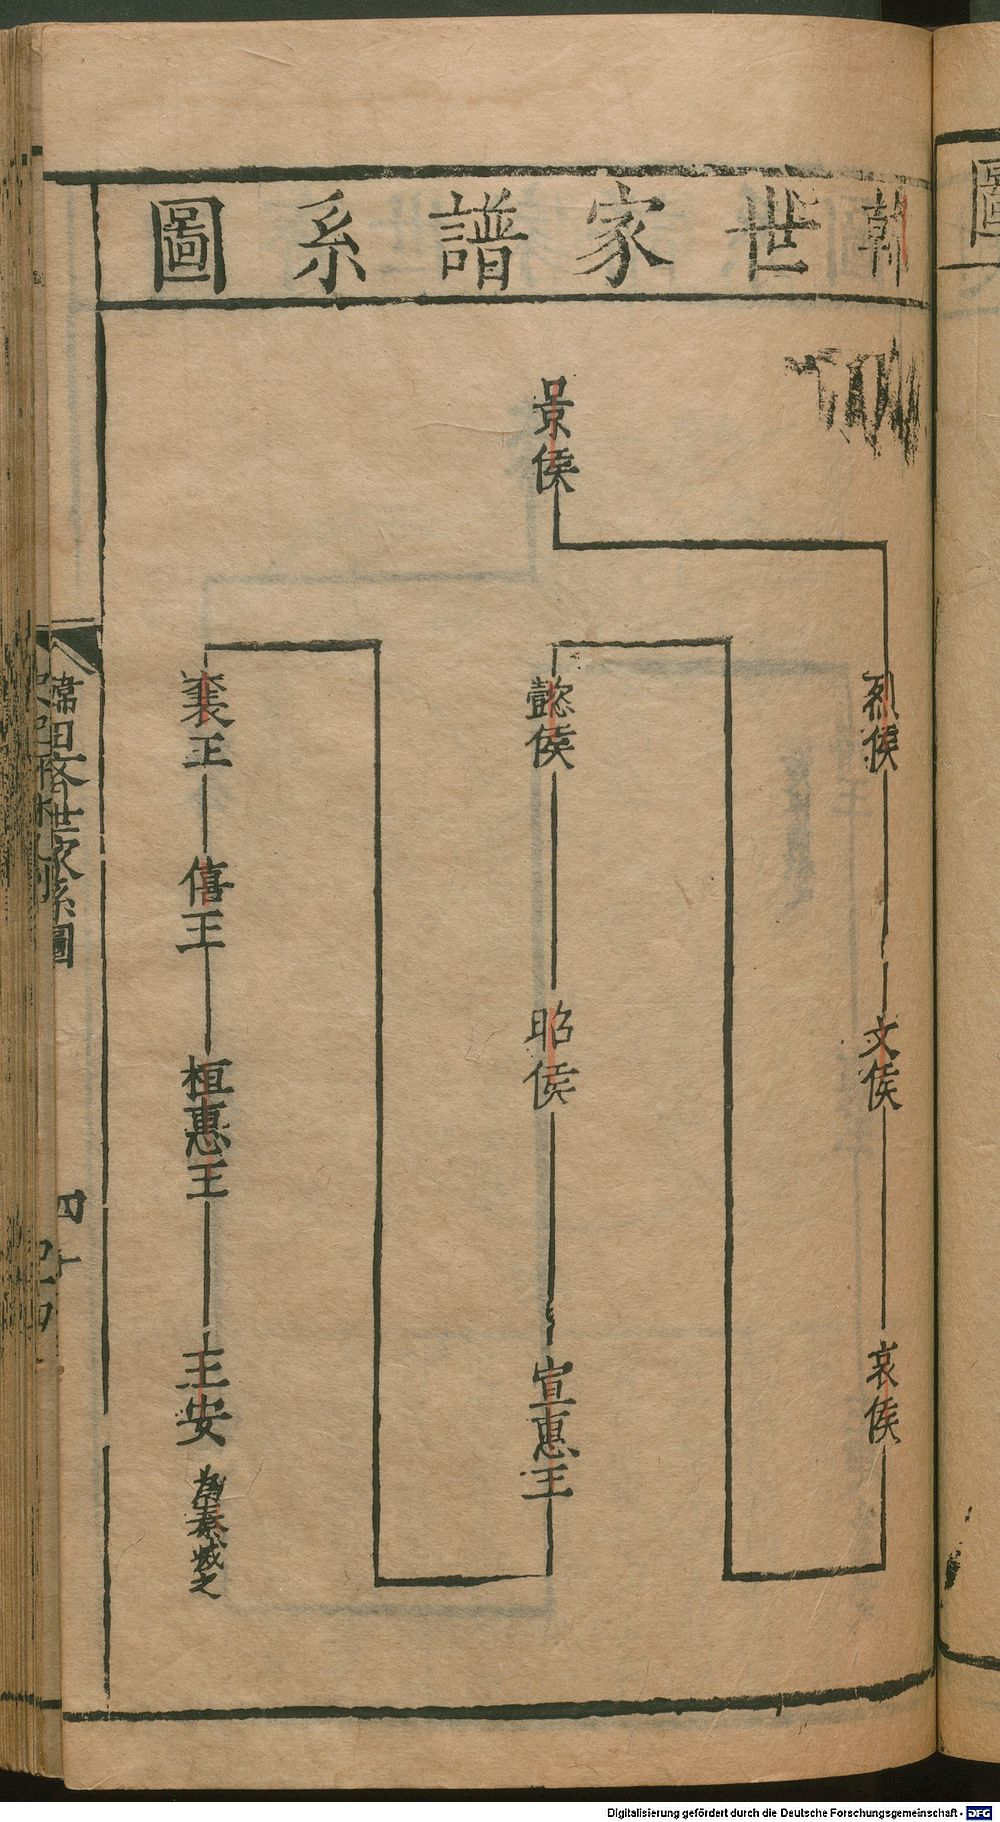 韓世家譜系圖
景侯
烈侯
文侯
哀侯
懿侯
昭侯
宣惠王
襄王
僖王
桓惠王
王安
為秦滅之
田齊世家系圖
四十
圖
Digitalisierung gefördert durch die Deutsche Forschungsgemeinschaft - DFG